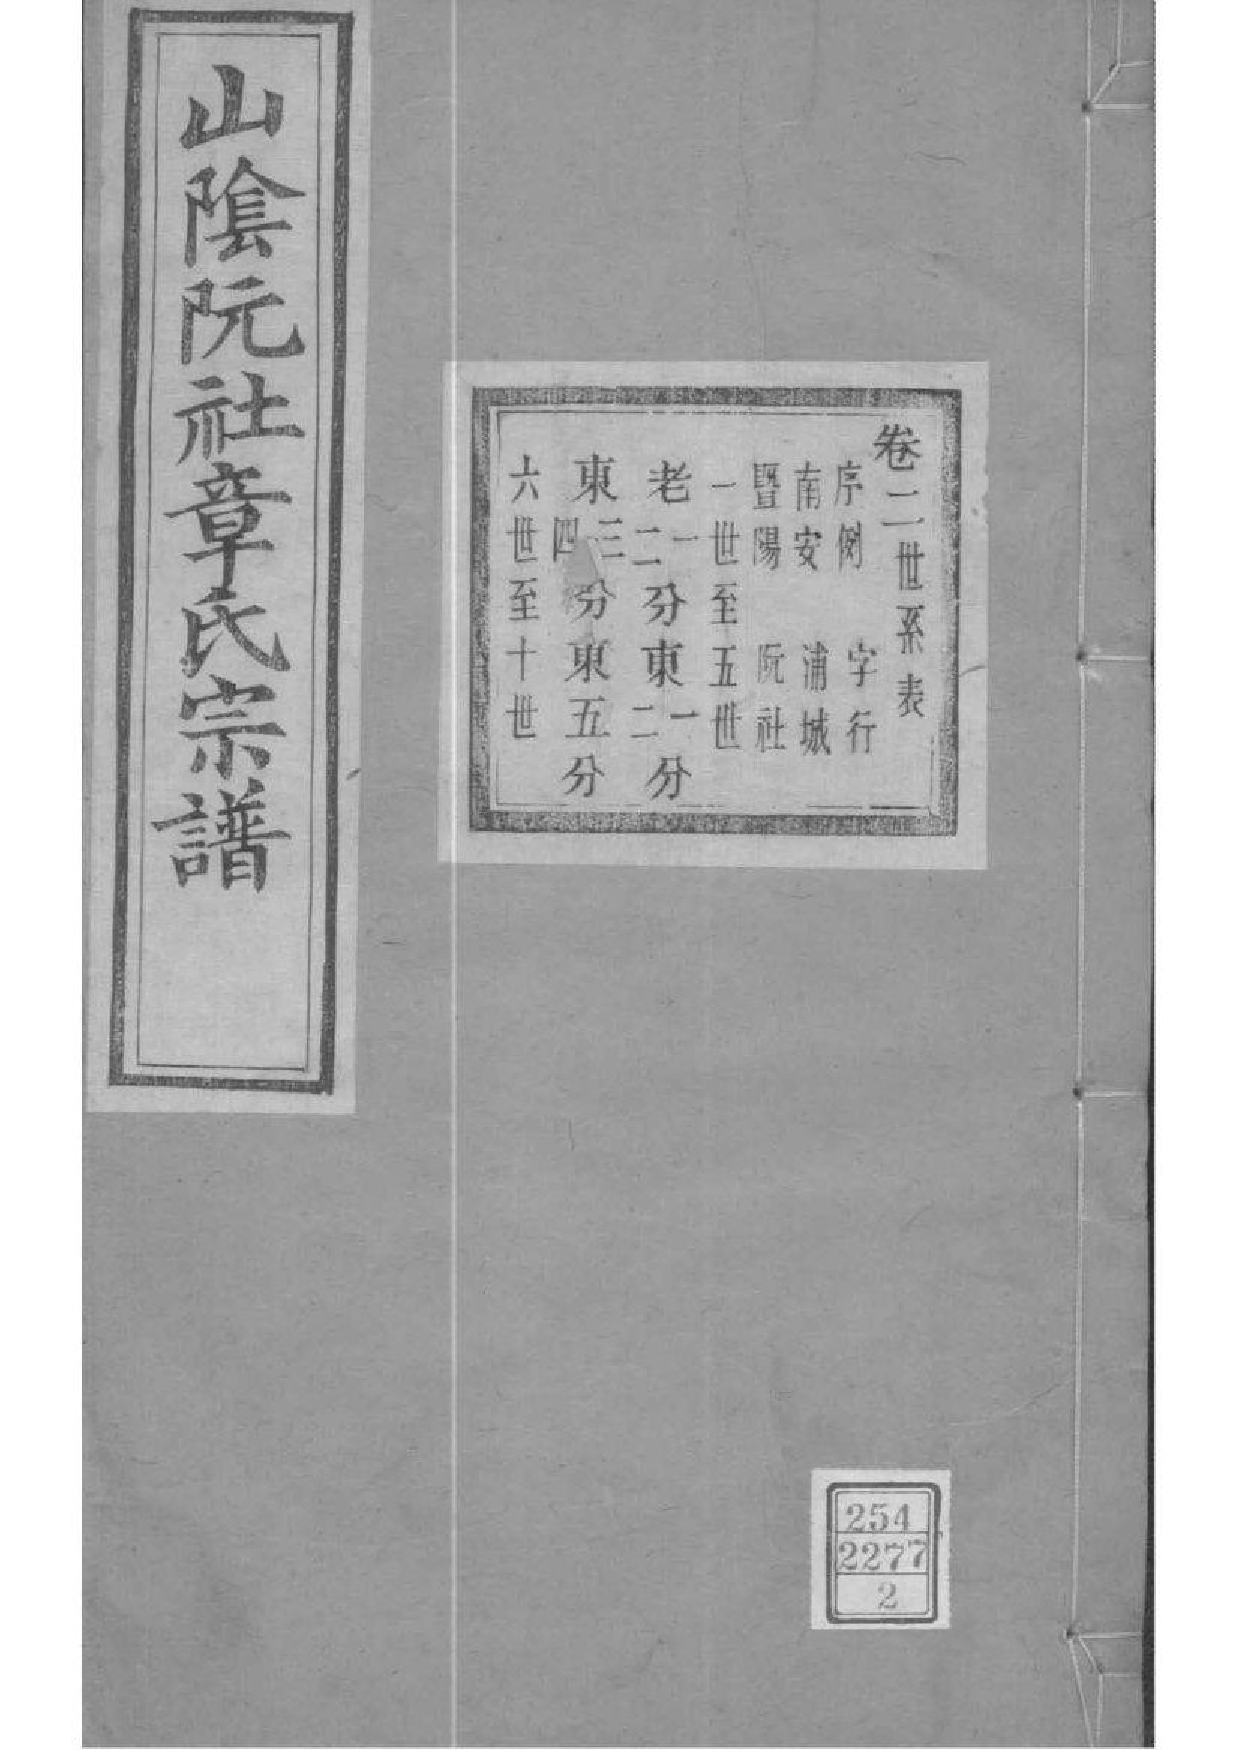 山陰阮社章氏宗譜
卷二世系表
序例 字行
南安 浦城
暨陽 阮社
一世至五世
老一二分東一二分
東三四分東五分
六世至十世
254
2277
2